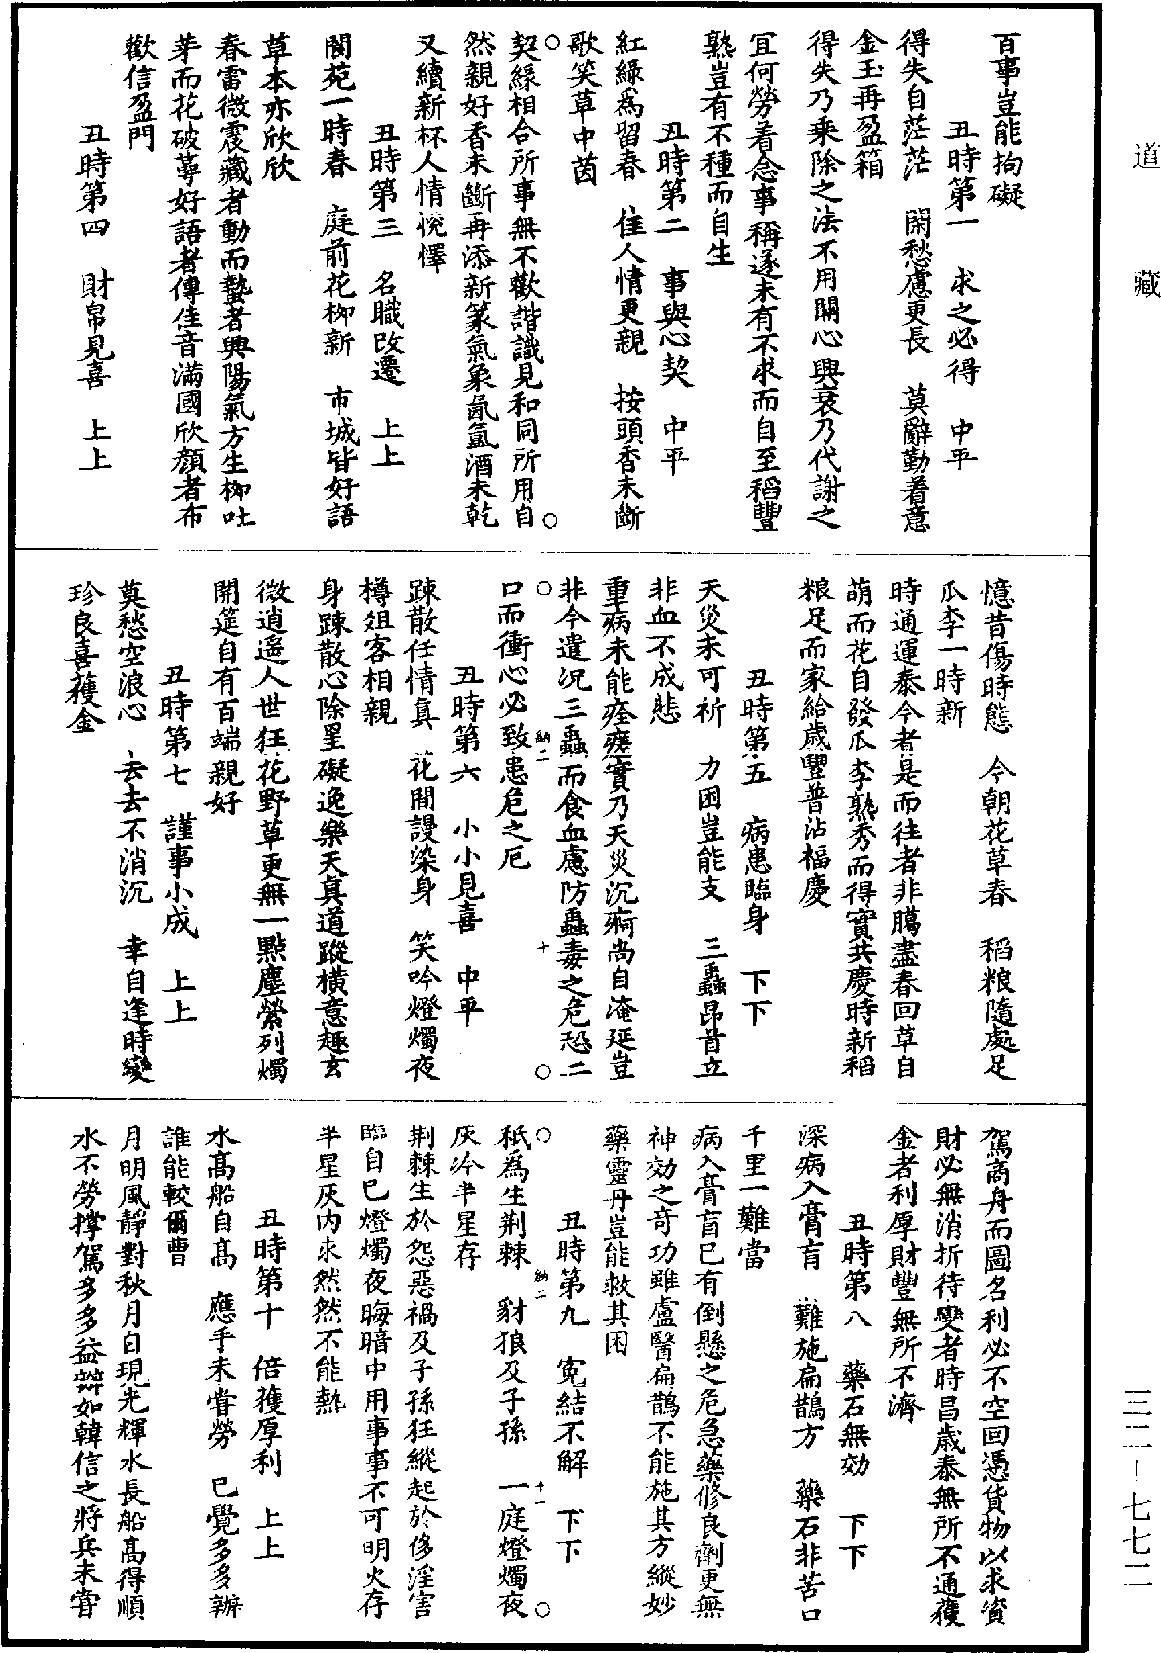 道藏
百事豈能拘礙
丑時第一　求之必得　中平
得失自茫茫　閑愁慮更長　莫辭勤着意
金玉再盈箱
得失乃乘除之法不用關心興衰乃代謝之
宜何勞着念事稱遂未有不求而自至稻豐
熟豈有不種而自生
丑時第二　事與心契　中平
紅綠爲留春　佳人情更親　按頭香未斷
歌笑草中茵
契緣相合所事無不歡諧識見和同所用自
然親好香未斷再添新篆氣象氤氳酒未乾
又續新杯人情悅懌
丑時第三　名職改遷　上上
閬苑一時春　庭前花柳新　市城皆好語
草本亦欣欣
春雷微震藏者動而蟄者興陽氣方生柳吐
芽而花破萼好語者傳佳音滿國欣顏者布
歡信盈門
丑時第四　財帛見喜　上上
憶昔傷時態　今朝花草春　稻粮隨處足
瓜李一時新
時通運泰今者是而往者非臘盡春回草自
萌而花自發瓜李熟秀而得實共慶時新稻
粮足而家給歲豐普沾福慶
丑時第五　病患臨身　下下
天災未可祈　力困豈能支　三蟲昂首立
非血不成悲
重病未能痊瘥實乃天災沉痾尚自淹延豈
非今遣況三蟲而食血慮防蟲毒之危恐二
口而衝心必致患危之厄
納二　十
丑時第六　小小見喜　中平
踈散任情眞　花間謾染身　笑吟燈燭夜
樽俎客相親
身踈散心除罣礙逸樂天真道蹤橫意趣玄
微逍遙人世狂花野草更無一點塵縈列燭
開筵自有百端親好
丑時第七　謹事小成　上上
莫愁空浪心　去去不消沉　幸自逢時變
珍良喜獲金
駕商舟而圖名利必不空回憑貨物以求資
財必無消折待變者時昌歲泰無所不通獲
金者利厚財豐無所不濟
丑時第八　藥石無効　下下
深病入膏肓　難施扁鵲方　藥石非苦口
千里一難當
病入膏肓已有倒懸之危急藥修良劑更無
神効之奇功雖盧醫扁鵲不能施其方縱妙
藥靈丹豈能救其困
丑時第九　寃結不解　下下
秖爲生荆棘　豺狼及子孫　一庭燈燭夜
灰冷半星存
納二　十一
荆棘生於怨惡禍及子孫狂縱起於侈淫害
臨自己燈燭夜晦暗中用事事不可明火存
半星灰內求然然不能熱
丑時第十　倍獲厚利　上上
水高船自高　應手未嘗勞　已覺多多辦
誰能較爾曹
月明風靜對秋月自現光輝水長船高得順
水不勞撐駕多多益辦如韓信之將兵未嘗
三二—七七二